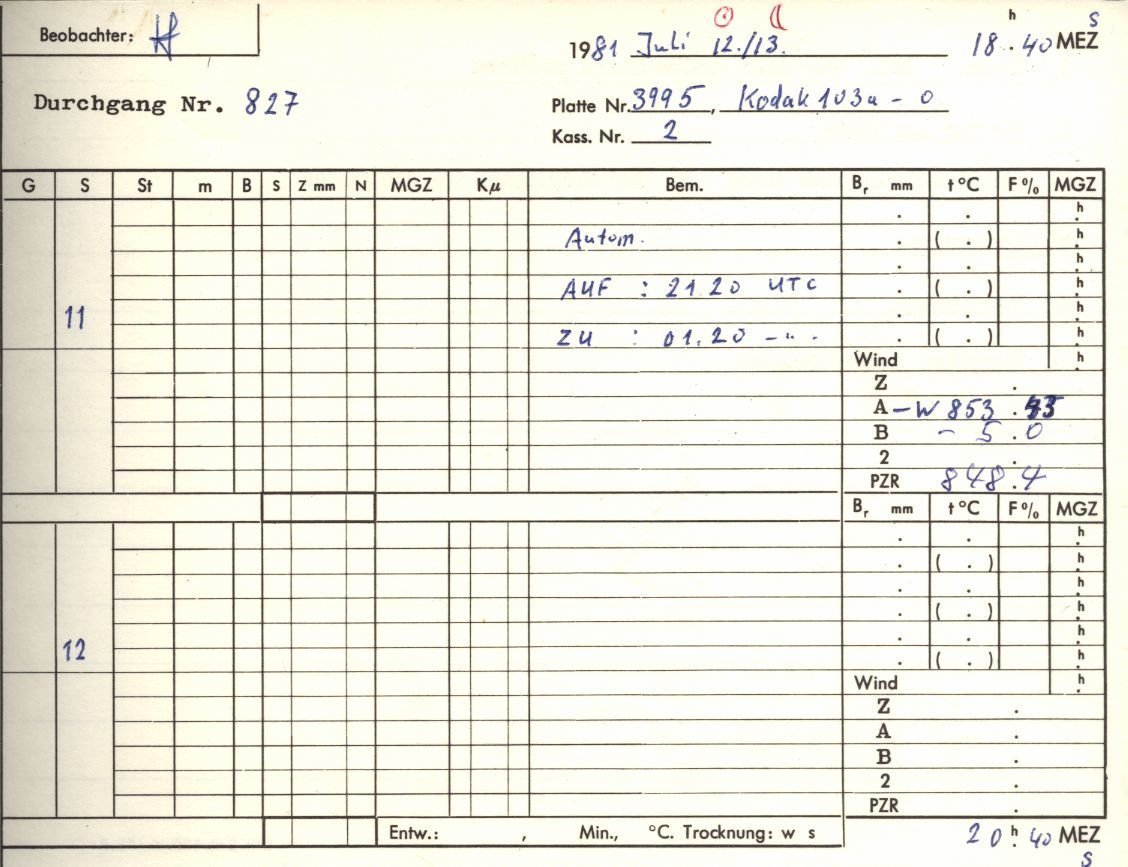 Beobachter:
1981 Juli 12./13. 18h.40 MEZ S
Durchgang Nr. 827
Platte Nr. 3995, Kodak 103a-O
Kass. Nr. 2
G S St m B S Z mm N MGZ Kμ Bem. Br mm t °C F % MGZ
. . h
Autom. . ( . ) h
. . h
AUF : 21 20 UTC . ( . ) h
11 . . h
ZU : 01.20 -"- . ( . ) h
Wind h
Z .
A - W 853 .
B - 5.0
2 .
PZR 848.4
Br mm t °C F % MGZ
. . h
. ( . ) h
. . h
. ( . ) h
. . h
12 . ( . ) h
Wind h
Z .
A .
B .
2 .
PZR .
Entw.: , Min., °C. Trocknung: w s 20h.40 MEZ
S